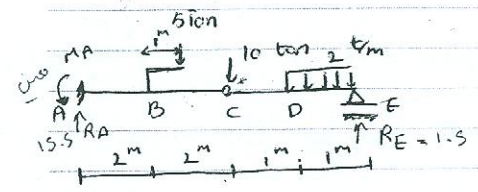 5 ton
1m
MA
10 ton
2 t/m
A
B
C
D
E
15.5 RA
RE = 1.5
2m 2m 1m 1m